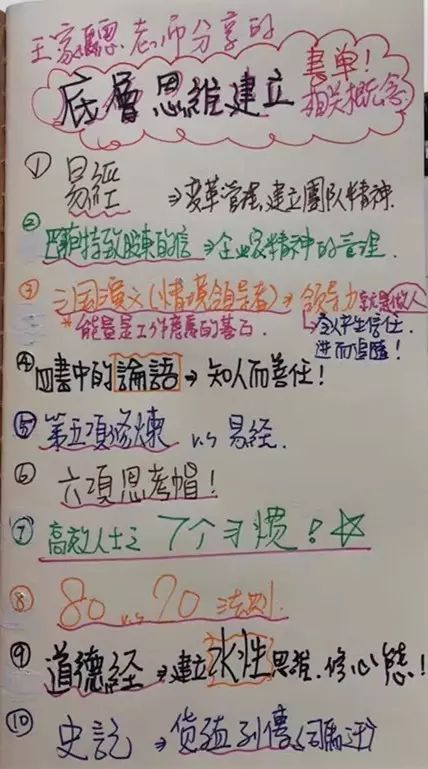 王家驄老师分享的
底層思維建立
書单！
相关概念
① 易經 ⇒ 变革管理、建立團队精神.
② 巴菲特致股東的信 ⇒ 企业家精神的管理.
③ 三国演义(情境領导者) ⇒ 領导力就是做人
* 能量是工作態度的基石
令人产生信任.
进而追随！
④ 四書中的論語 → 知人而善任！
⑤ 第五項修煉 v.s 易经.
⑥ 六項思考帽！
⑦ 高效人士之 7个习惯！☆
⑧ 80 v.s 20 法则.
⑨ 道德経 ⇒ 建立水性思维.修心態！
⑩ 史記 ⇒ 货殖列傳(司馬迁)